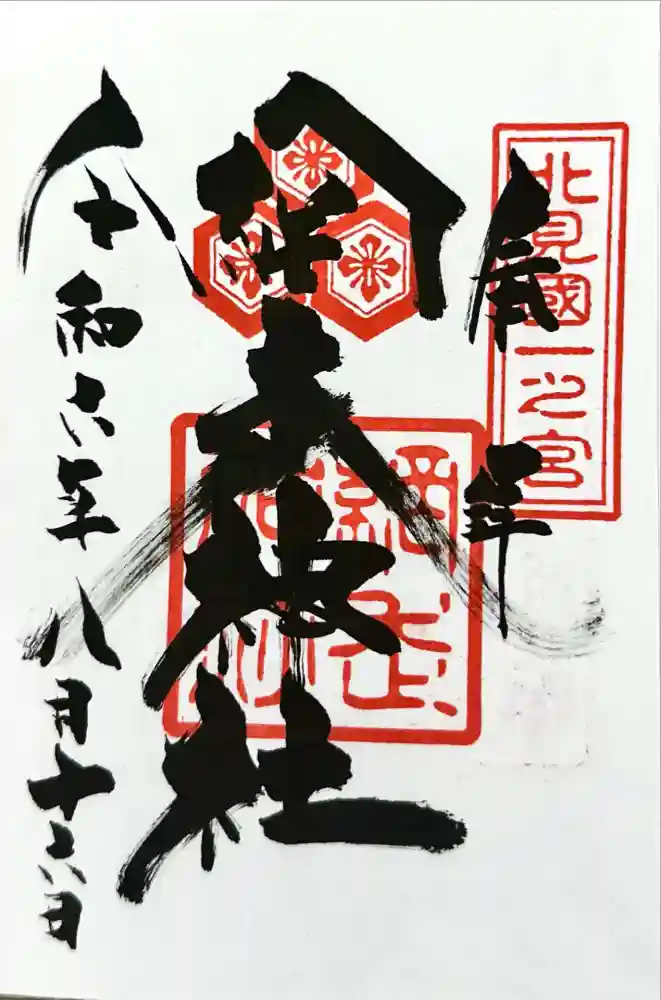 北見國一之宮
奉拝
網走神社
網走神社
令和六年八月十六日